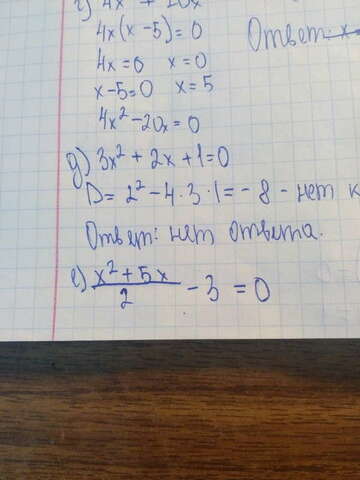 г) 4x + 20x
4x(x-5)=0
Ответ: x
4x=0 x=0
x-5=0 x=5
4x²-20x=0
д) 3x² + 2x + 1=0
D= 2² - 4·3·1= - 8 - нет к
Ответ: нет ответа.
е) (x² + 5x)/2 - 3 = 0